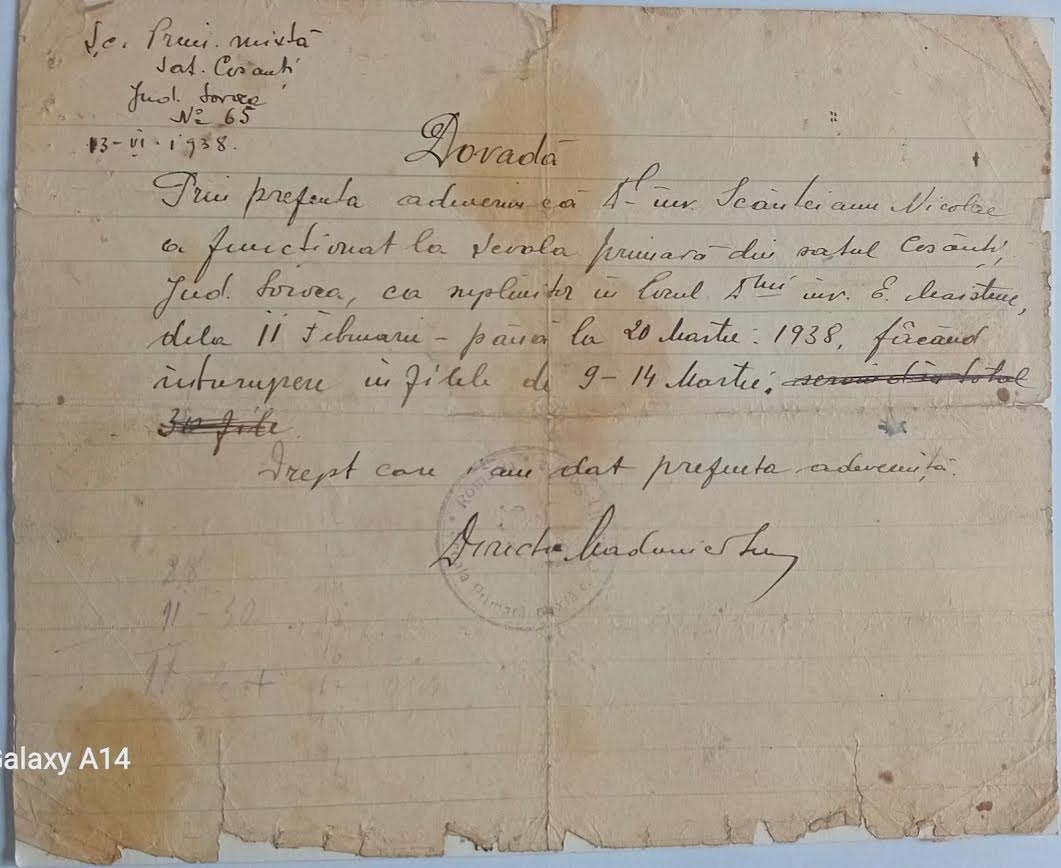 Șc. Prim. mixtă
Sat. Cosăuți
Jud. Soroca
No 65
13-VI-1938.
Dovadă
Prin prezenta adeverim că Dl inv. Scânteianu Nicolae
a funcționat la școala primară din satul Cosăuți,
Jud. Soroca, ca suplinitor în locul Dlui inv. E.
dela 11 Februarie - până la 20 Martie. 1938, făcând
intrerupere in zilele de 9-14 Martie;
30 zile
Drept care i am dat prezenta adeverință.
Director
Primară mixtă
28
11 - 30
17
Galaxy A14